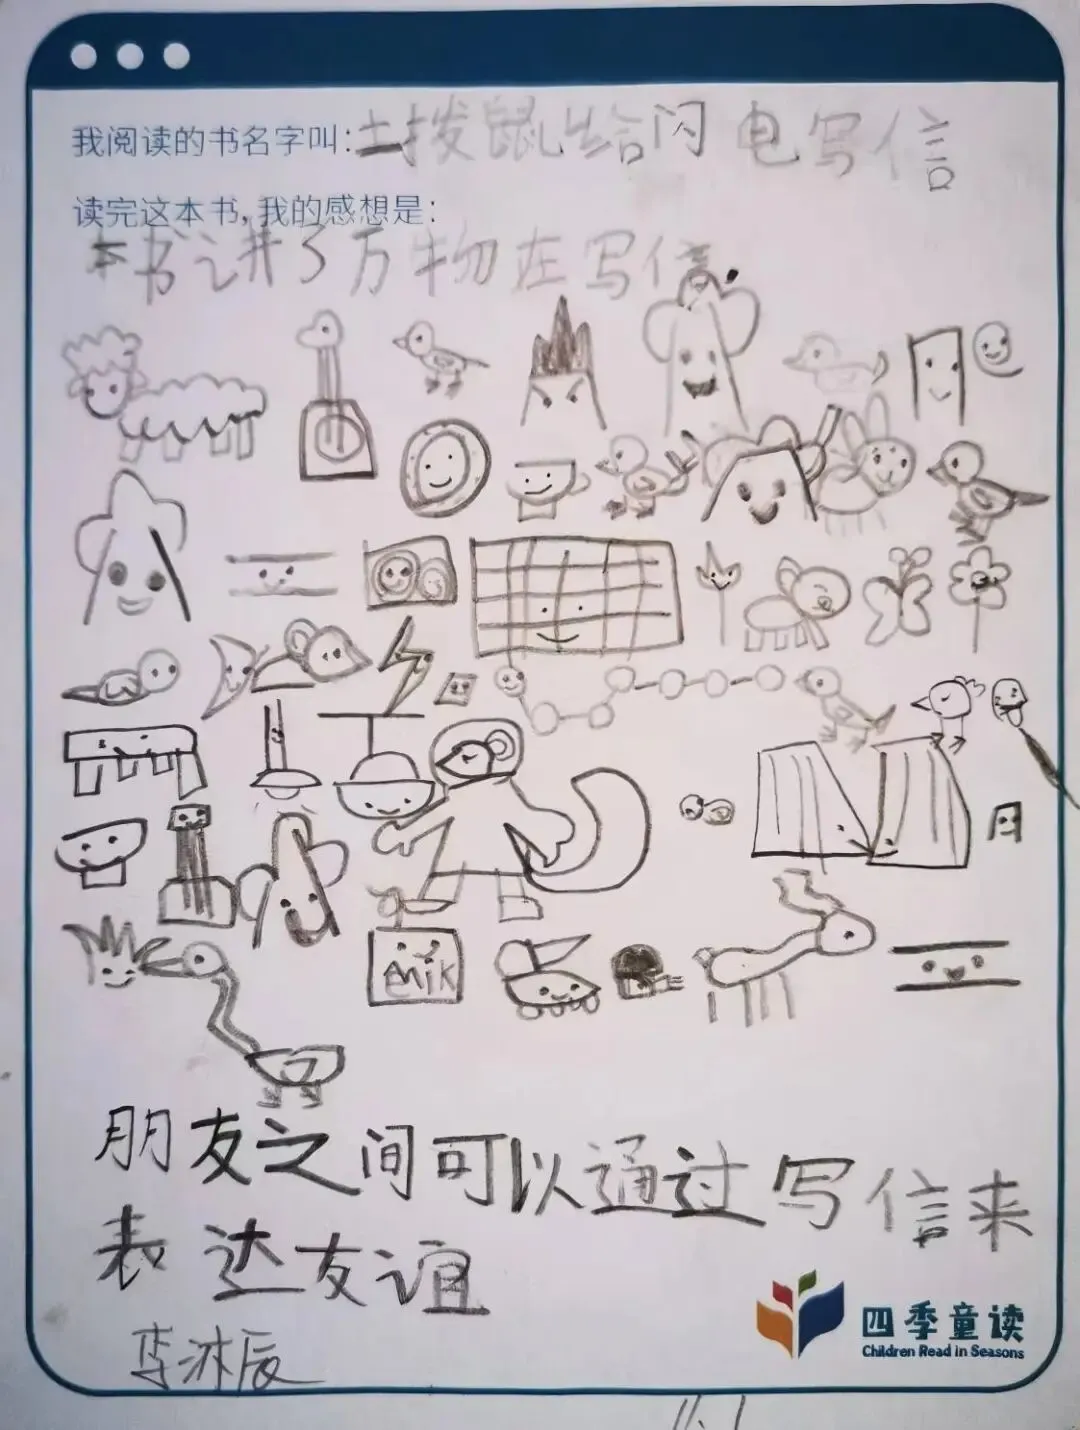 我阅读的书名字叫:土拨鼠给闪电写信
读完这本书,我的感想是:
本书讲了万物在写信.
朋友之间可以通过写信来
表达友谊
四季童读
Children Read in Seasons